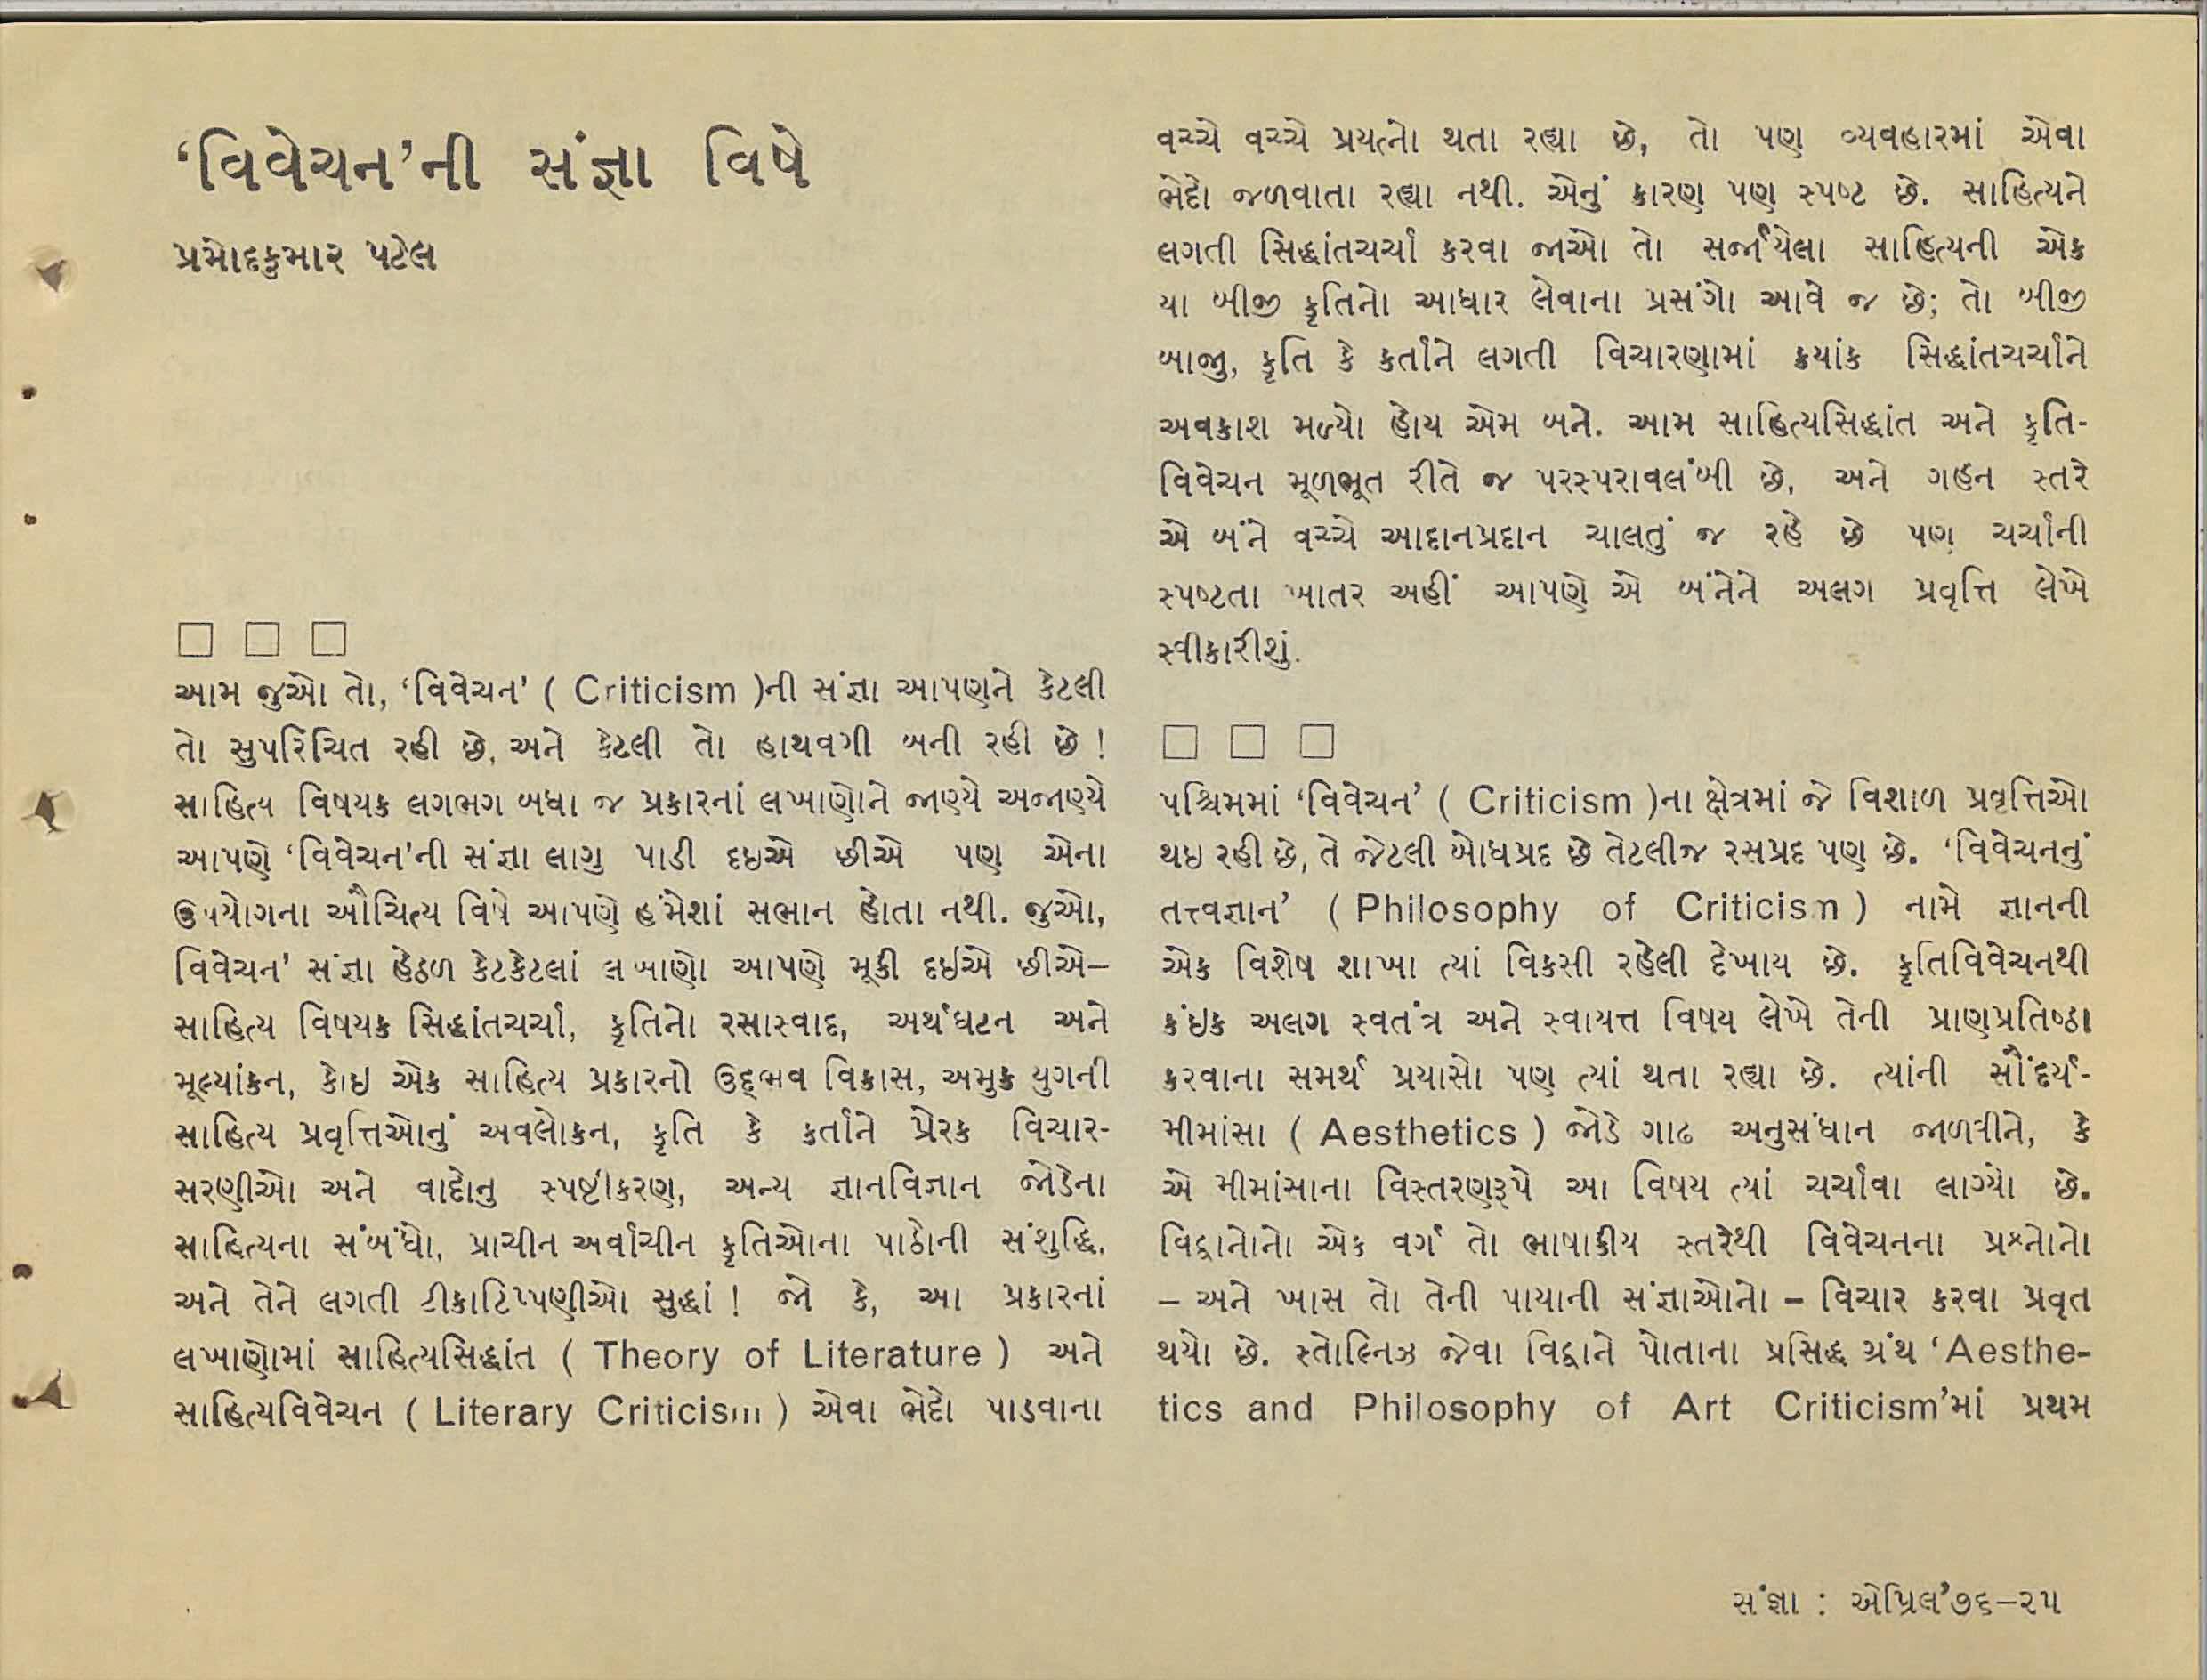 ‘વિવેચન’ની સંજ્ઞા વિષે
પ્રમોદકુમાર પટેલ
□ □ □
આમ જુઓ તો, ‘વિવેચન’ ( Criticism )ની સંજ્ઞા આપણને કેટલી
તો સુપરિચિત રહી છે, અને કેટલી તો હાથવગી બની રહી છે !
સાહિત્ય વિષયક લગભગ બધા જ પ્રકારનાં લખાણોને જાણ્યે અજાણ્યે
આપણે ‘વિવેચન’ની સંજ્ઞા લાગુ પાડી દઇએ છીએ પણ એના
ઉપયોગના ઔચિત્ય વિષે આપણે હંમેશાં સભાન હોતા નથી. જુઓ,
વિવેચન’ સંજ્ઞા હેઠળ કેટકેટલાં લખાણો આપણે મૂકી દઈએ છીએ–
સાહિત્ય વિષયક સિદ્ધાંતચર્ચા, કૃતિનો રસાસ્વાદ, અર્થઘટન અને
મૂલ્યાંકન, કોઇ એક સાહિત્ય પ્રકારનો ઉદ્ભવ વિકાસ, અમુક યુગની
સાહિત્ય પ્રવૃત્તિઓનું અવલોકન, કૃતિ કે કર્તાને પ્રેરક વિચાર-
સરણીઓ અને વાદોનુ સ્પષ્ટીકરણ, અન્ય જ્ઞાનવિજ્ઞાન જોડેના
સાહિત્યના સંબંધો, પ્રાચીન અર્વાચીન કૃતિઓના પાઠોની સંશુદ્ધિ,
અને તેને લગતી ટીકાટિપ્પણીઓ સુદ્ધાં ! જો કે, આ પ્રકારનાં
લખાણોમાં સાહિત્યસિદ્ધાંત ( Theory of Literature ) અને
સાહિત્યવિવેચન ( Literary Criticism ) એવા ભેદો પાડવાના
વચ્ચે વચ્ચે પ્રયત્નો થતા રહ્યા છે, તો પણ વ્યવહારમાં એવા
ભેદો જળવાતા રહ્યા નથી. એનું કારણ પણ સ્પષ્ટ છે. સાહિત્યને
લગતી સિદ્ધાંતચર્ચા કરવા જાઓ તો સર્જાયેલા સાહિત્યની એક
યા બીજી કૃતિનો આધાર લેવાના પ્રસંગો આવે જ છે; તો બીજી
બાજુ, કૃતિ કે કર્તાને લગતી વિચારણામાં ક્યાંક સિદ્ધાંતચર્ચાને
અવકાશ મળ્યો હોય એમ બને. આમ સાહિત્યસિદ્ધાંત અને કૃતિ-
વિવેચન મૂળભૂત રીતે જ પરસ્પરાવલંબી છે, અને ગહન સ્તરે
એ બંને વચ્ચે આદાનપ્રદાન ચાલતું જ રહે છે પણ ચર્ચાની
સ્પષ્ટતા ખાતર અહીં આપણે એ બંનેને અલગ પ્રવૃત્તિ લેખે
સ્વીકારીશું.
□ □ □
પશ્ચિમમાં ‘વિવેચન’ ( Criticism )ના ક્ષેત્રમાં જે વિશાળ પ્રવૃત્તિઓ
થઇ રહી છે, તે જેટલી બોધપ્રદ છે તેટલીજ રસપ્રદ પણ છે. ‘વિવેચનનું
તત્ત્વજ્ઞાન’ ( Philosophy of Criticism ) નામે જ્ઞાનની
એક વિશેષ શાખા ત્યાં વિકસી રહેલી દેખાય છે. કૃતિવિવેચનથી
કંઇક અલગ સ્વતંત્ર અને સ્વાયત્ત વિષય લેખે તેની પ્રાણપ્રતિષ્ઠા
કરવાના સમર્થ પ્રયાસો પણ ત્યાં થતા રહ્યા છે. ત્યાંની સૌંદર્ય-
મીમાંસા ( Aesthetics ) જોડે ગાઢ અનુસંધાન જાળવીને, કે
એ મીમાંસાના વિસ્તરણરૂપે આ વિષય ત્યાં ચર્ચાવા લાગ્યો છે.
વિદ્વાનોનો એક વર્ગ તો ભાષાકીય સ્તરેથી વિવેચનના પ્રશ્નોનો
– અને ખાસ તો તેની પાયાની સંજ્ઞાઓનો – વિચાર કરવા પ્રવૃત
થયો છે. સ્તોલ્નિઝ જેવા વિદ્વાને પોતાના પ્રસિદ્ધ ગ્રંથ ‘Aesthe-
tics and Philosophy of Art Criticism’માં પ્રથમ
સંજ્ઞા : એપ્રિલ’૭૬–૨૫